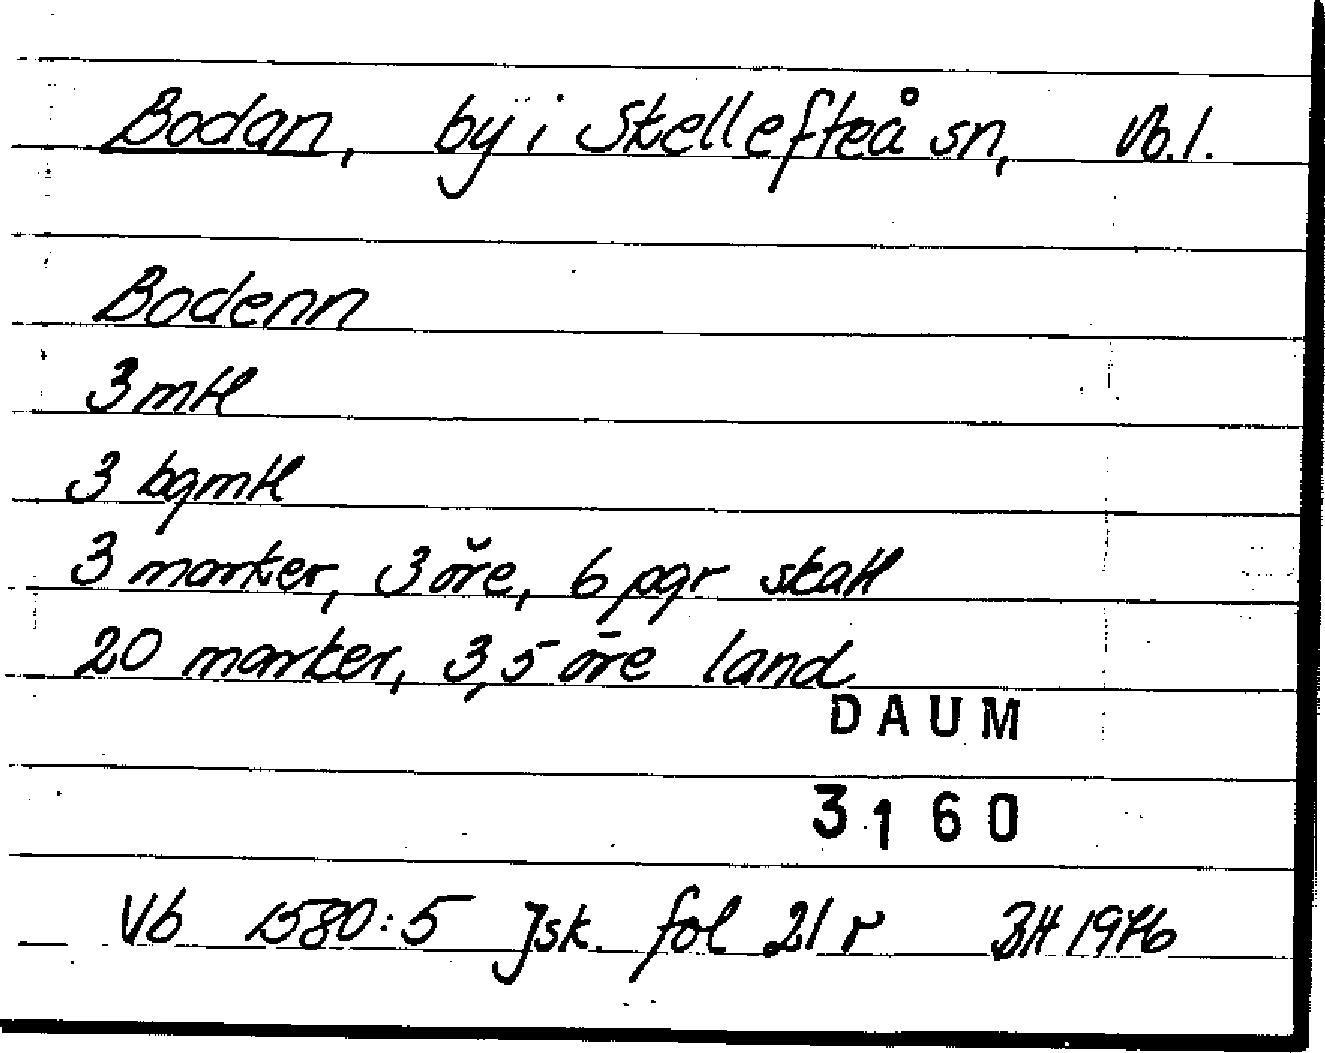 Bodan, by i Skellefteå sn, Vb.l.
Bodenn
3 mtl
3 bgmtl
3 marker, 3 öre, 6 pgr skatt
20 marker, 3,5 öre land
DAUM
3160
Vb 1580:5 Jsk. fol 21 r BH 1976